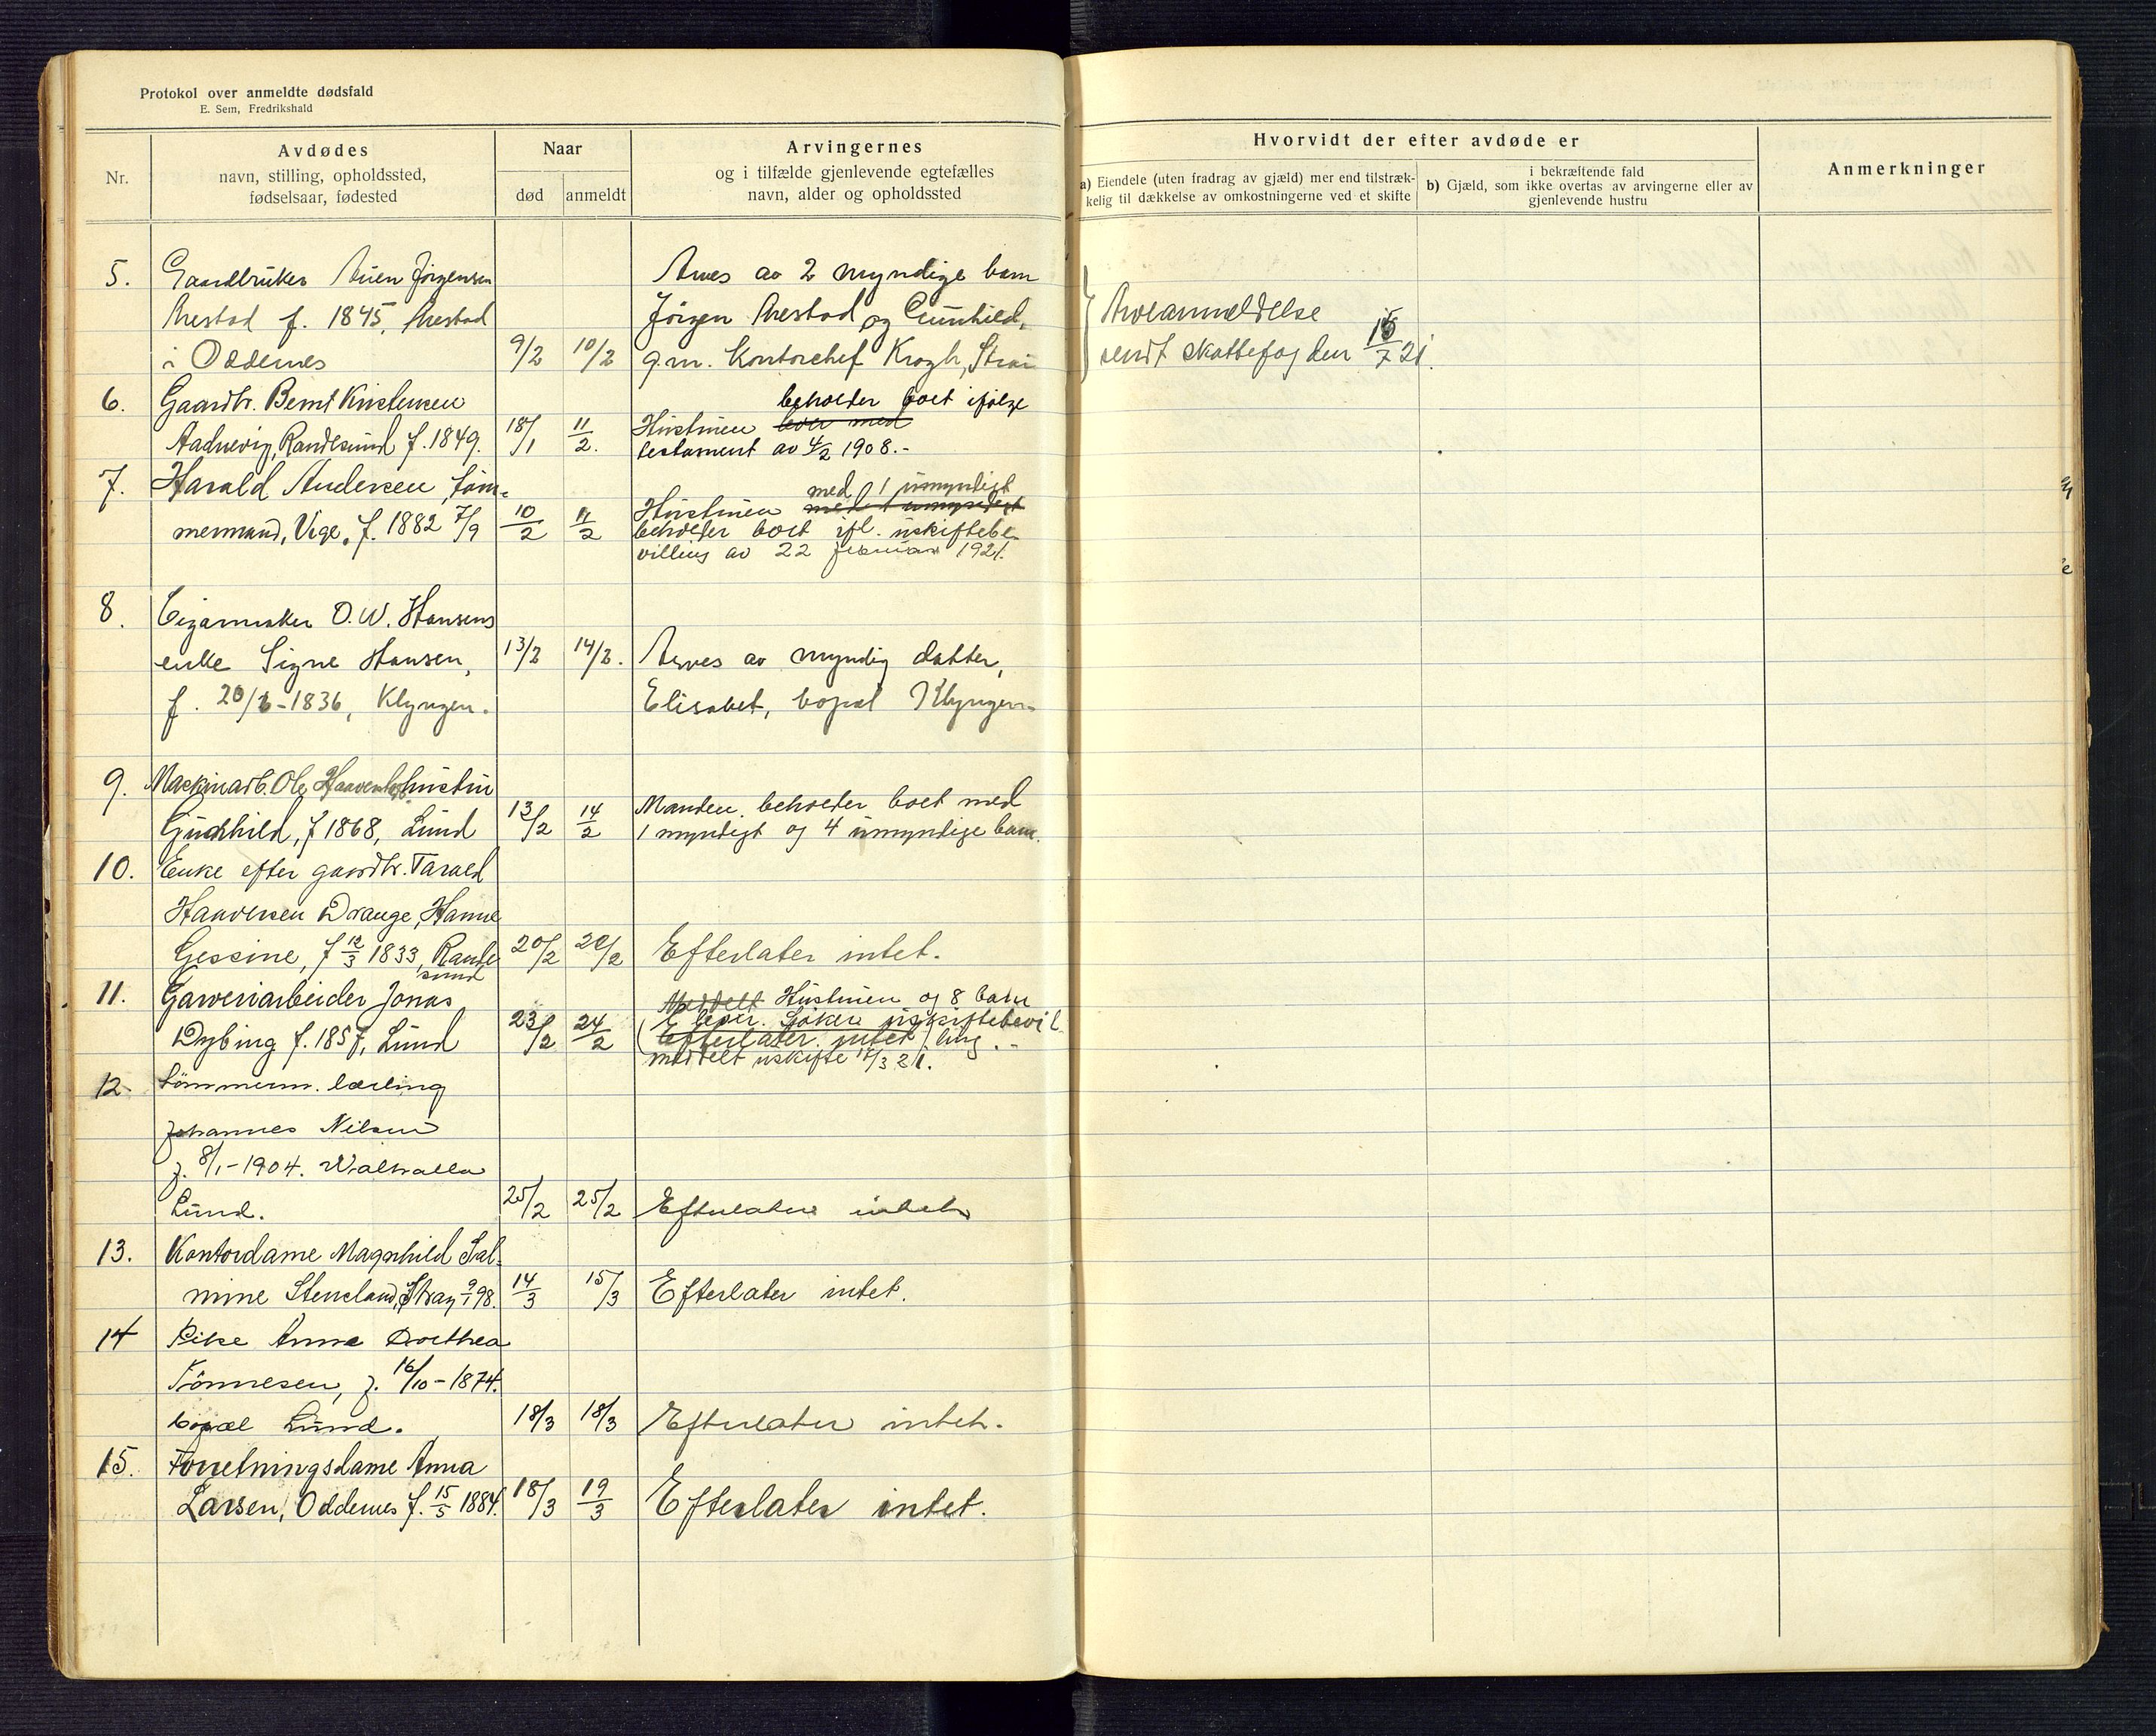 Protokol over anmeldte dødsfald
E. Sem, Fredrikshald
Nr.
Avdødes
navn, stilling, opholdssted,
fødselsaar, fødested
Naar
død
anmeldt
Arvingernes
og i tilfælde gjenlevende egtefælles
navn, alder og opholdssted
Hvorvidt der efter avdøde er
a) Eiendele (uten fradrag av gjæld) mer end tilstræk-
kelig til dækkelse av omkostningerne ved et skifte
i bekræftende fald
b) Gjæld, som ikke overtas av arvingerne eller av
gjenlevende hustru
Anmerkninger
5. Gaardbruker Auen Jörgensen
Arestad f. 1845, Arestad
i Oddernes 9/2 10/2
Arves av 2 myndige barn
Jörgen Arestad og Gunhild,
g.m. Kontorchef Krogh, Strai
Arveanmeldelse
sendt skattefog den 15/7 21.
6. Gaardbr. Bernt Kristensen
Aadnevig, Randesund f. 1849. 18/1 11/2.
beholder boet ifölge
Hustruen lever med
testament av 4/2 1908.-
7. Harald Andersen, töm-
mermand, Vige, f. 1882 7/9 10/2 11/2
med 1 umyndigt
Hustruen med 1 umyndigt
beholder boet ifl. uskiftebe-
villing av 22 februar 1921.
8. Cigarmaker O. W. Hansens
enke Signe Hansen, 13/2 14/2. Arves av myndig datter,
f. 20/6-1836, Klyngen. Elisabet, bopæl Klyngen
9. Maskinarb. Ole hustru
Gunhild, f 1868, Lund 13/2 14/2
Manden beholder boet med
1 myndigt og 4 umyndige barn.
10. Enke efter gaardbr. Tarald
Haaversen Drange, Hanne
Gessine, f 12/3 1833, Rande 20/2 20/2 Efterlater intet.
sund
11. Garveriarbeider Jonas
Dybing f. 1857, Lund 23/2 24/2
Meddelt Hustruen og 8 barn
lever. Söker uskiftebevil
(Efterlater intet) ling.-
meddelt uskifte 18/3 21.
12. Tömmerm. lærling
Johannes Nilsen
f. 8/1-1904. Walhalla
Lund. 25/2 25/2 Efterlater intet
13. Kontordame Magnhild Sal-
mine Stensland, Stray 9/1 98. 14/3 15/3 Efterlater intet.
14 Pike Anna Dorthea
Tönnesen, f. 16/10-1874.
bopæl Lund. 18/3 18/3 Efterlater intet.
15. Forretningsdame Anna
Larsen, Oddernes f. 15/5 1884. 18/3 19/3 Efterlater intet.